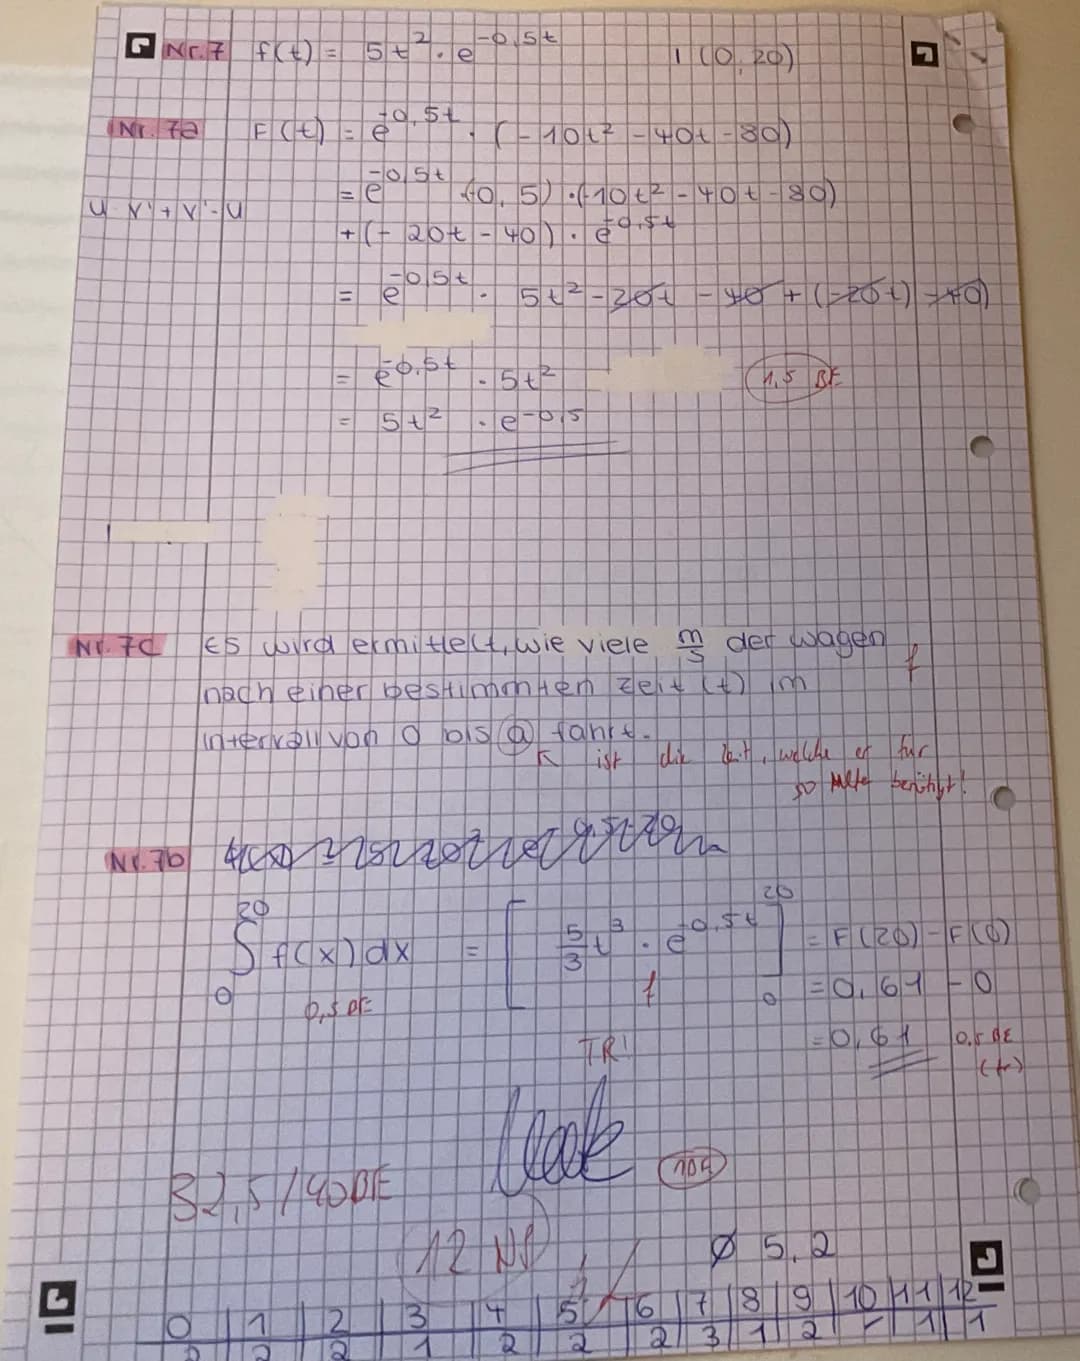 Nr. 7 f(t) = 5t² · e^-0,5t I (0, 20)
Nr. 7a F(t) = e^-0,5t · (-10t² - 40t - 80)
= e^-0,5t (-0,5) · (-10t² - 40t - 80)
u · v' + v' · u
+ (- 20t - 40) · e^-0,5t
= e^-0,5t · 5t² - 20t - 40 + (-20t) - 40)
= e^-0,5t · 5t² 1,5 BE
= 5t² · e^-0,5
Nr. 7c Es wird ermittelt, wie viele m/s der Wagen f
nach einer bestimmten Zeit (t) im
Intervall von 0 bis a fährt.
ist die Zeit, welche er für
50 Meter benötigt!
Nr. 7b
∫₀²⁰ f(x) dx = [5/3 t³ · e^-0,5t]₀²⁰ = F(20) - F(0)
0,5 BE f = 0,61 - 0
= 0,61 0,5 BE
TR! (fr)
32,5/40BE
12 NP Ø 5,2
0 1 2 3 4 5 6 7 8 9 10 11 12
2 2 2 1 2 2 2 3 1 2 - 1 1